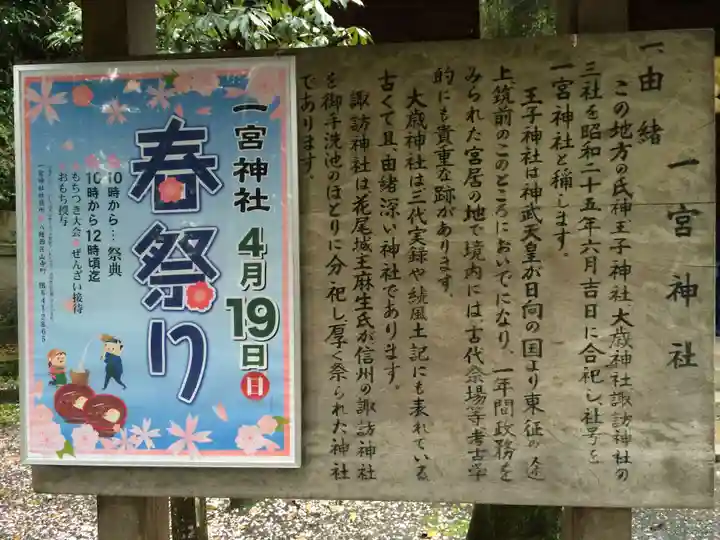 一宮神社
一、由緒
この地方の氏神王子神社、大歳神社諏訪神社の
三社を昭和二十五年六月吉日に合祀し、社号を
一宮神社と稱します。
王子神社は神武天皇が日向の国より東征の途
上、筑前のこのところにおいでになり、一年間政務を
みられた宮居の地で境内には古代祭場等考古学
的にも貴重な跡があります。
大歳神社は三代実録や続風土記にも表れている
古くて且、由緒深い神社であります。
諏訪神社は、花尾城主麻生氏が信州の諏訪神社
を御手洗池のほとりに分祀し、厚く祭られた神社
であります。
一宮神社
4月19日(日)
春祭り
10時から…祭典
10時から12時頃迄
もちつき大会 ぜんざい接待
おもち授与